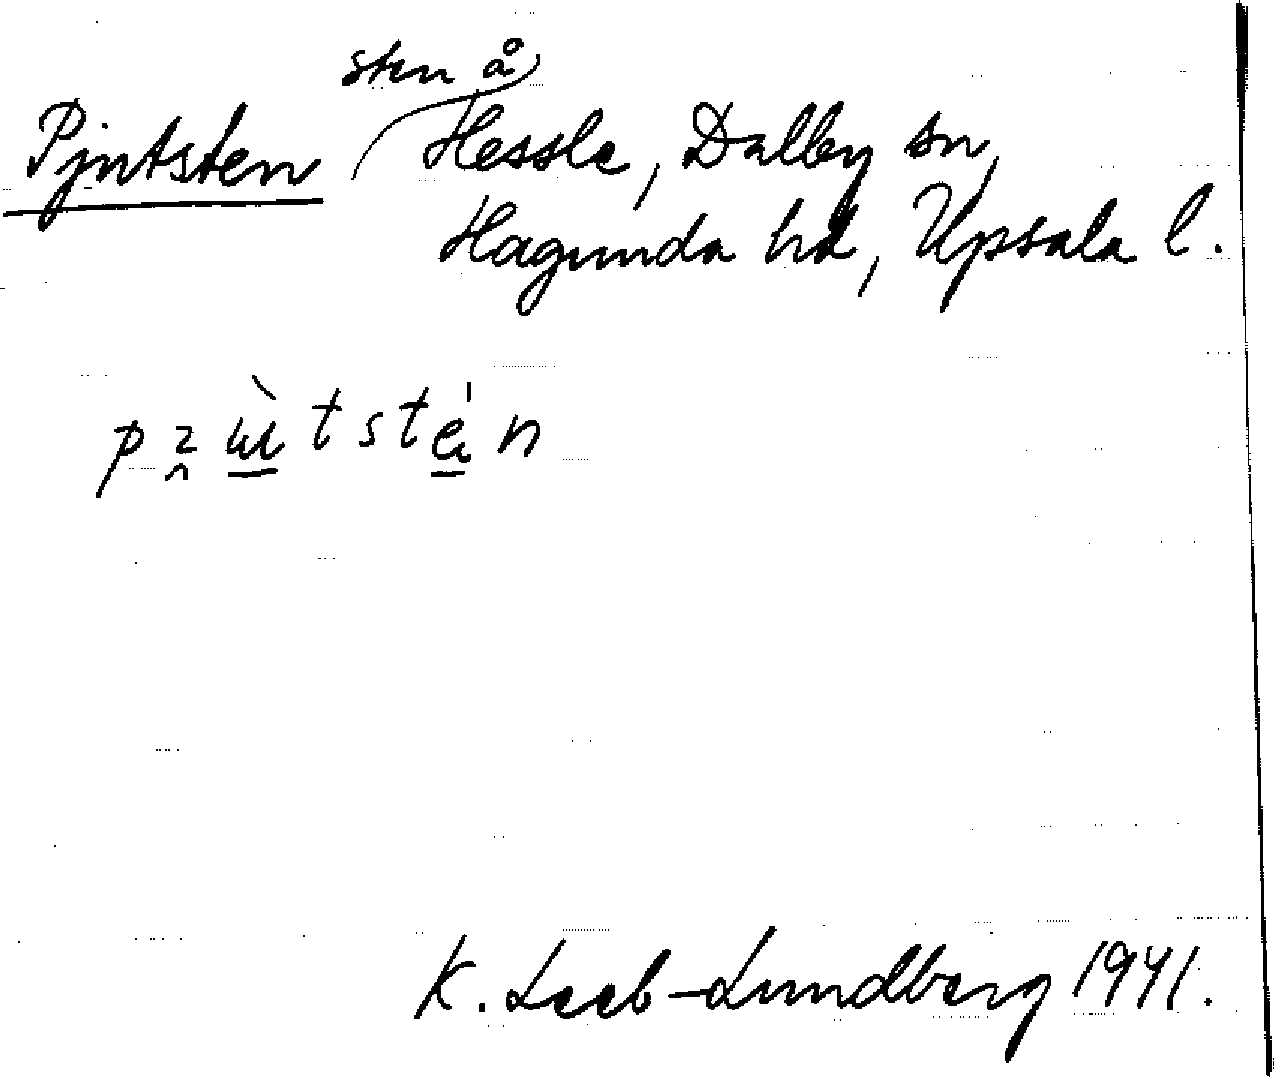 sten å
Pjutsten Hessle, Dalby sn,
Hagunda hd, Upsala l.
K. Leeb-Lundberg 1941.